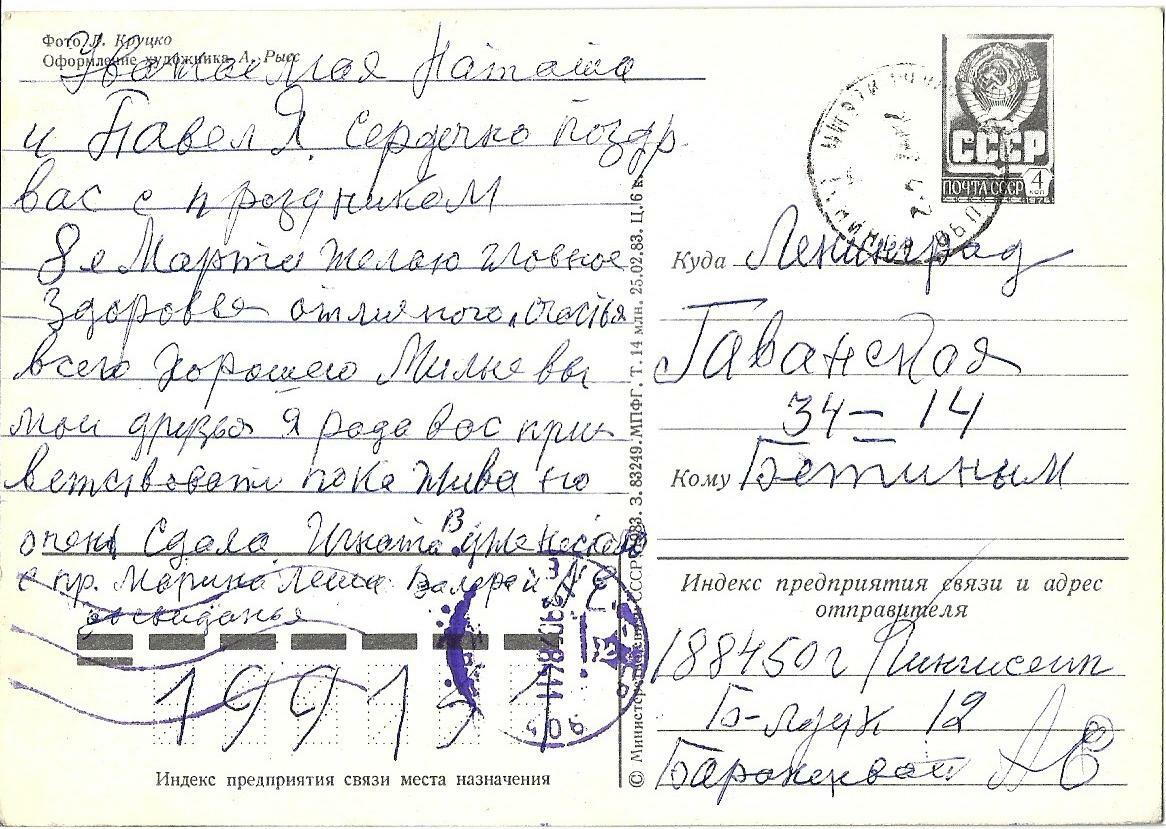 Фото Л. Круцко
Оформление художника А. Рысс
Уважаемая Наташа
и Павел Я. Сердечно поздр.
вас с праздником
8е Марта желаю главное
Здоровья отличного, счастья
всего хорошего Милые вы
мои друзья Я рада вас при
ветствовать пока жива но
очень Сдала
с пр. Марина Леша Валерий
досвиданья
199151
Индекс предприятия связи места назначения
© Министерство связи СССР. 1983. З. 83249. МПФГ. Т. 14 млн. 25.02.83. Ц. 6 к.
СССР
ПОЧТА СССР 4 коп
Куда Ленинград
Гаванская
34 = 14
Кому Бетиным
Индекс предприятия связи и адрес
отправителя
188450 г Кингисепп
Б-
12